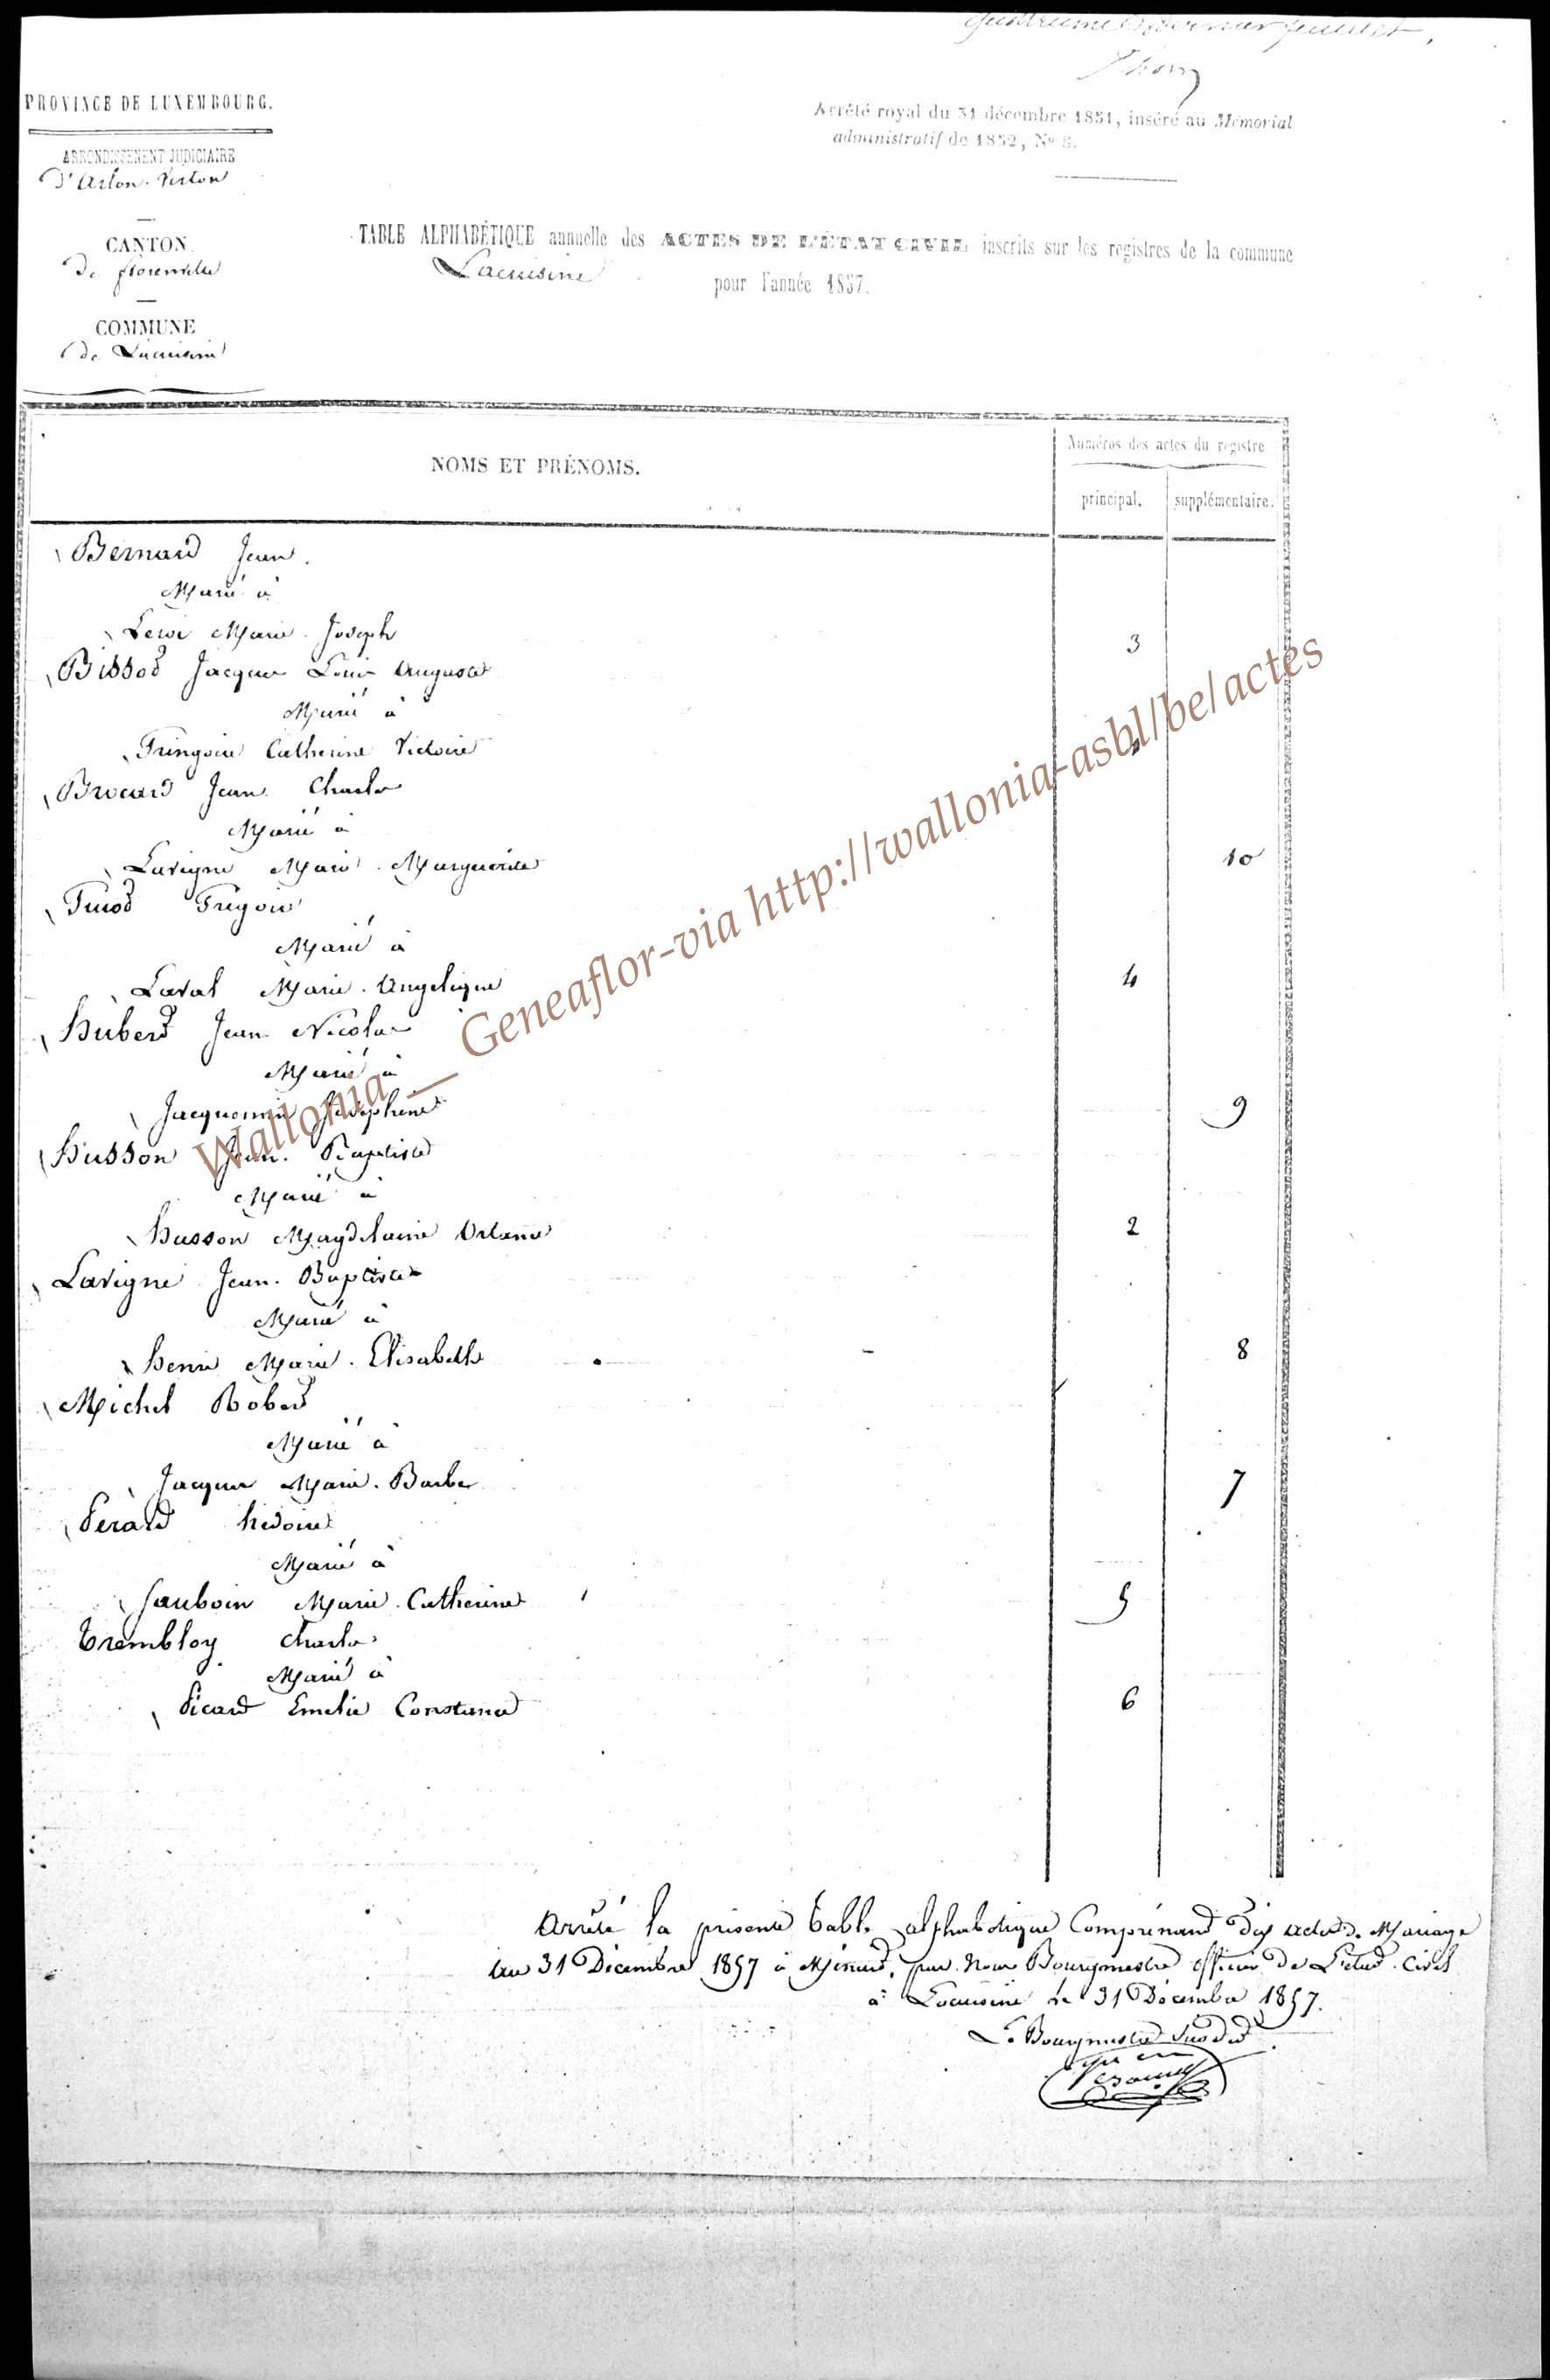 dernier feuillet,
PROVINCE DE LUXEMBOURG.
Arrêté royal du 31 décembre 1851, inséré au Mémorial
administratif de 1852, Nº 5.
ARRONDISSEMENT JUDICIAIRE
d'Arlon. Virton
CANTON
De florenville
COMMUNE
de Lacuisine
TABLE ALPHABÉTIQUE annuelle des ACTES DE L'ÉTAT CIVIL inscrits sur les registres de la commune
Lacuisine pour l'année 1857.
NOMS ET PRÉNOMS.
Numéros des actes du registre
principal. supplémentaire.
Bernard Jean.
Marié à
Marie Joseph 3
Bissot Jacques Louis Auguste
Marié à
Catherine Victoire
Brocard Jean Charles
Marié à
Lavigne Marie Marguerite 10
Marié à
Laval Marie Angelique 4
Hubert Jean Nicolas
Marié à
Jacquemin Josephine 9
Husson Jean Baptiste
Marié à
Husson Magdelaine 2
Lavigne Jean Baptiste
Marié à
Henri Marie Elisabeth 8
Michel Robert
Marié à
Jacques Marie Barbe 7
Pérard
Marié à
Jauboin Marie Catherine 5
Trembloy Charles
Marié à
Picard Emelie Constance 6
Arrêté la présente table alphabétique Comprenant dix actes de Mariage
au 31 Décembre 1857 à par Nous Bourgmestre officier De L'etat Civil
à Lacuisine le 31 Décembre 1857.
Le Bourgmestre Susdit
Wallonia__Geneaflor-via http://wallonia-asbl/be/actes